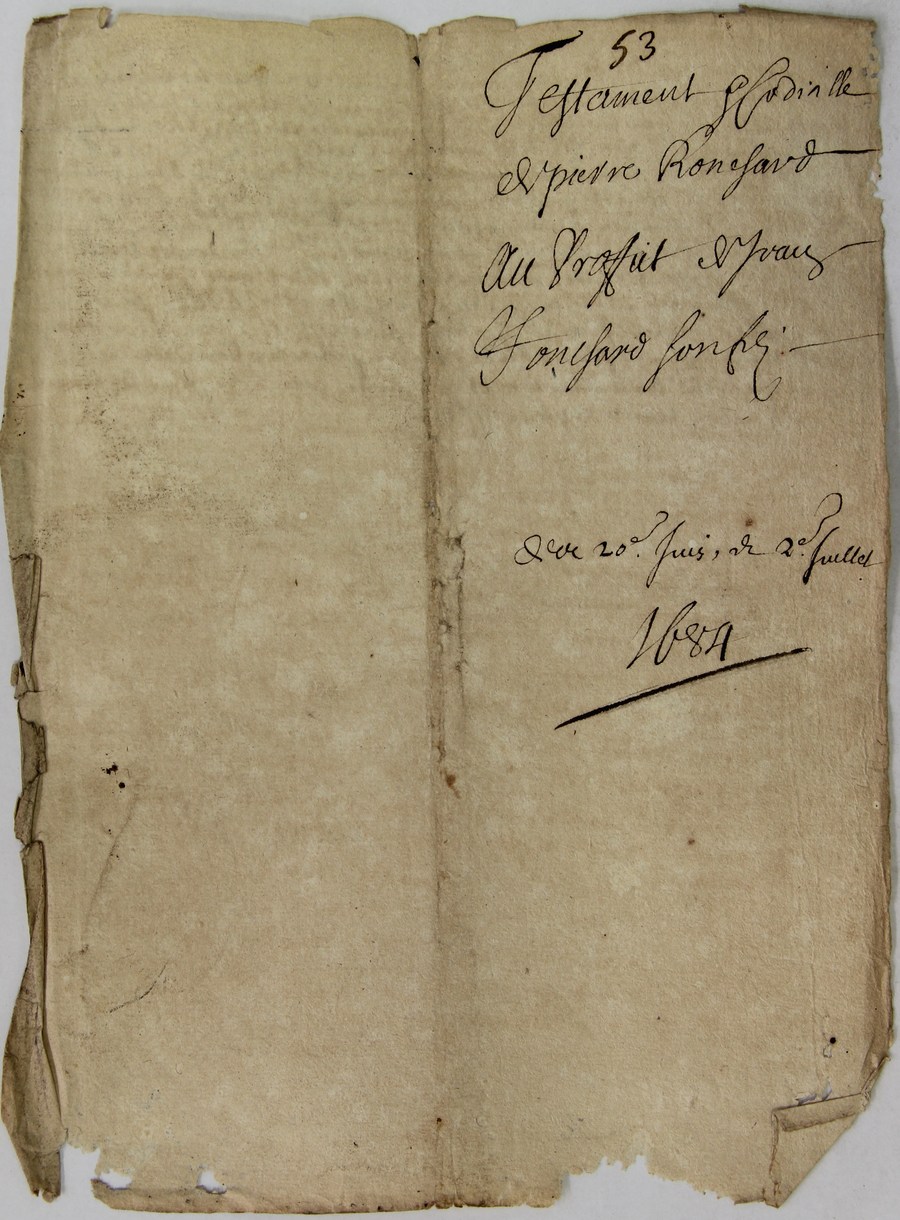 53
Testament & Codicille
de pierre Ronssard
Au Proffict de Jean
Ronssard son filz
de 20e. Juin, de 2e. Juillet
1684